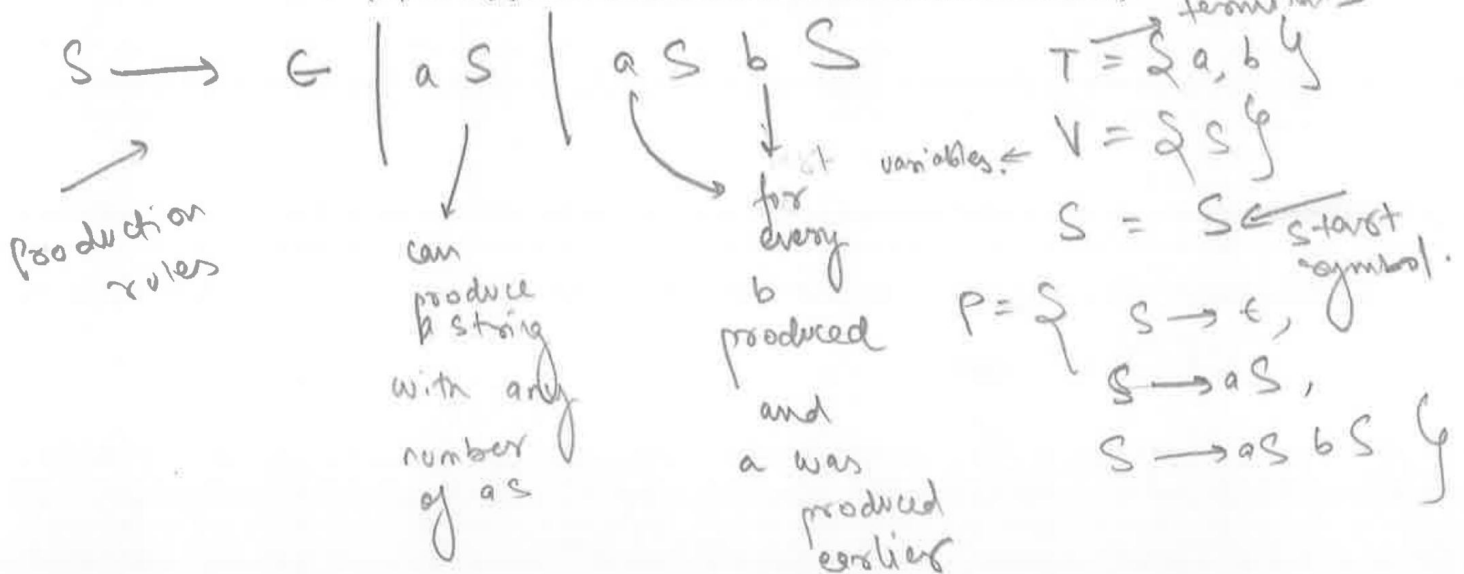 S → ϵ | a S | a S b S
production
rules
can
produce
a string
with any
number
of as
for
every
b
produced
and
a was
produced
earlier
T = { a, b }
variables. ← V = { S }
S = S ← start
symbol.
P = { S → ϵ,
S → aS,
S → aS b S }